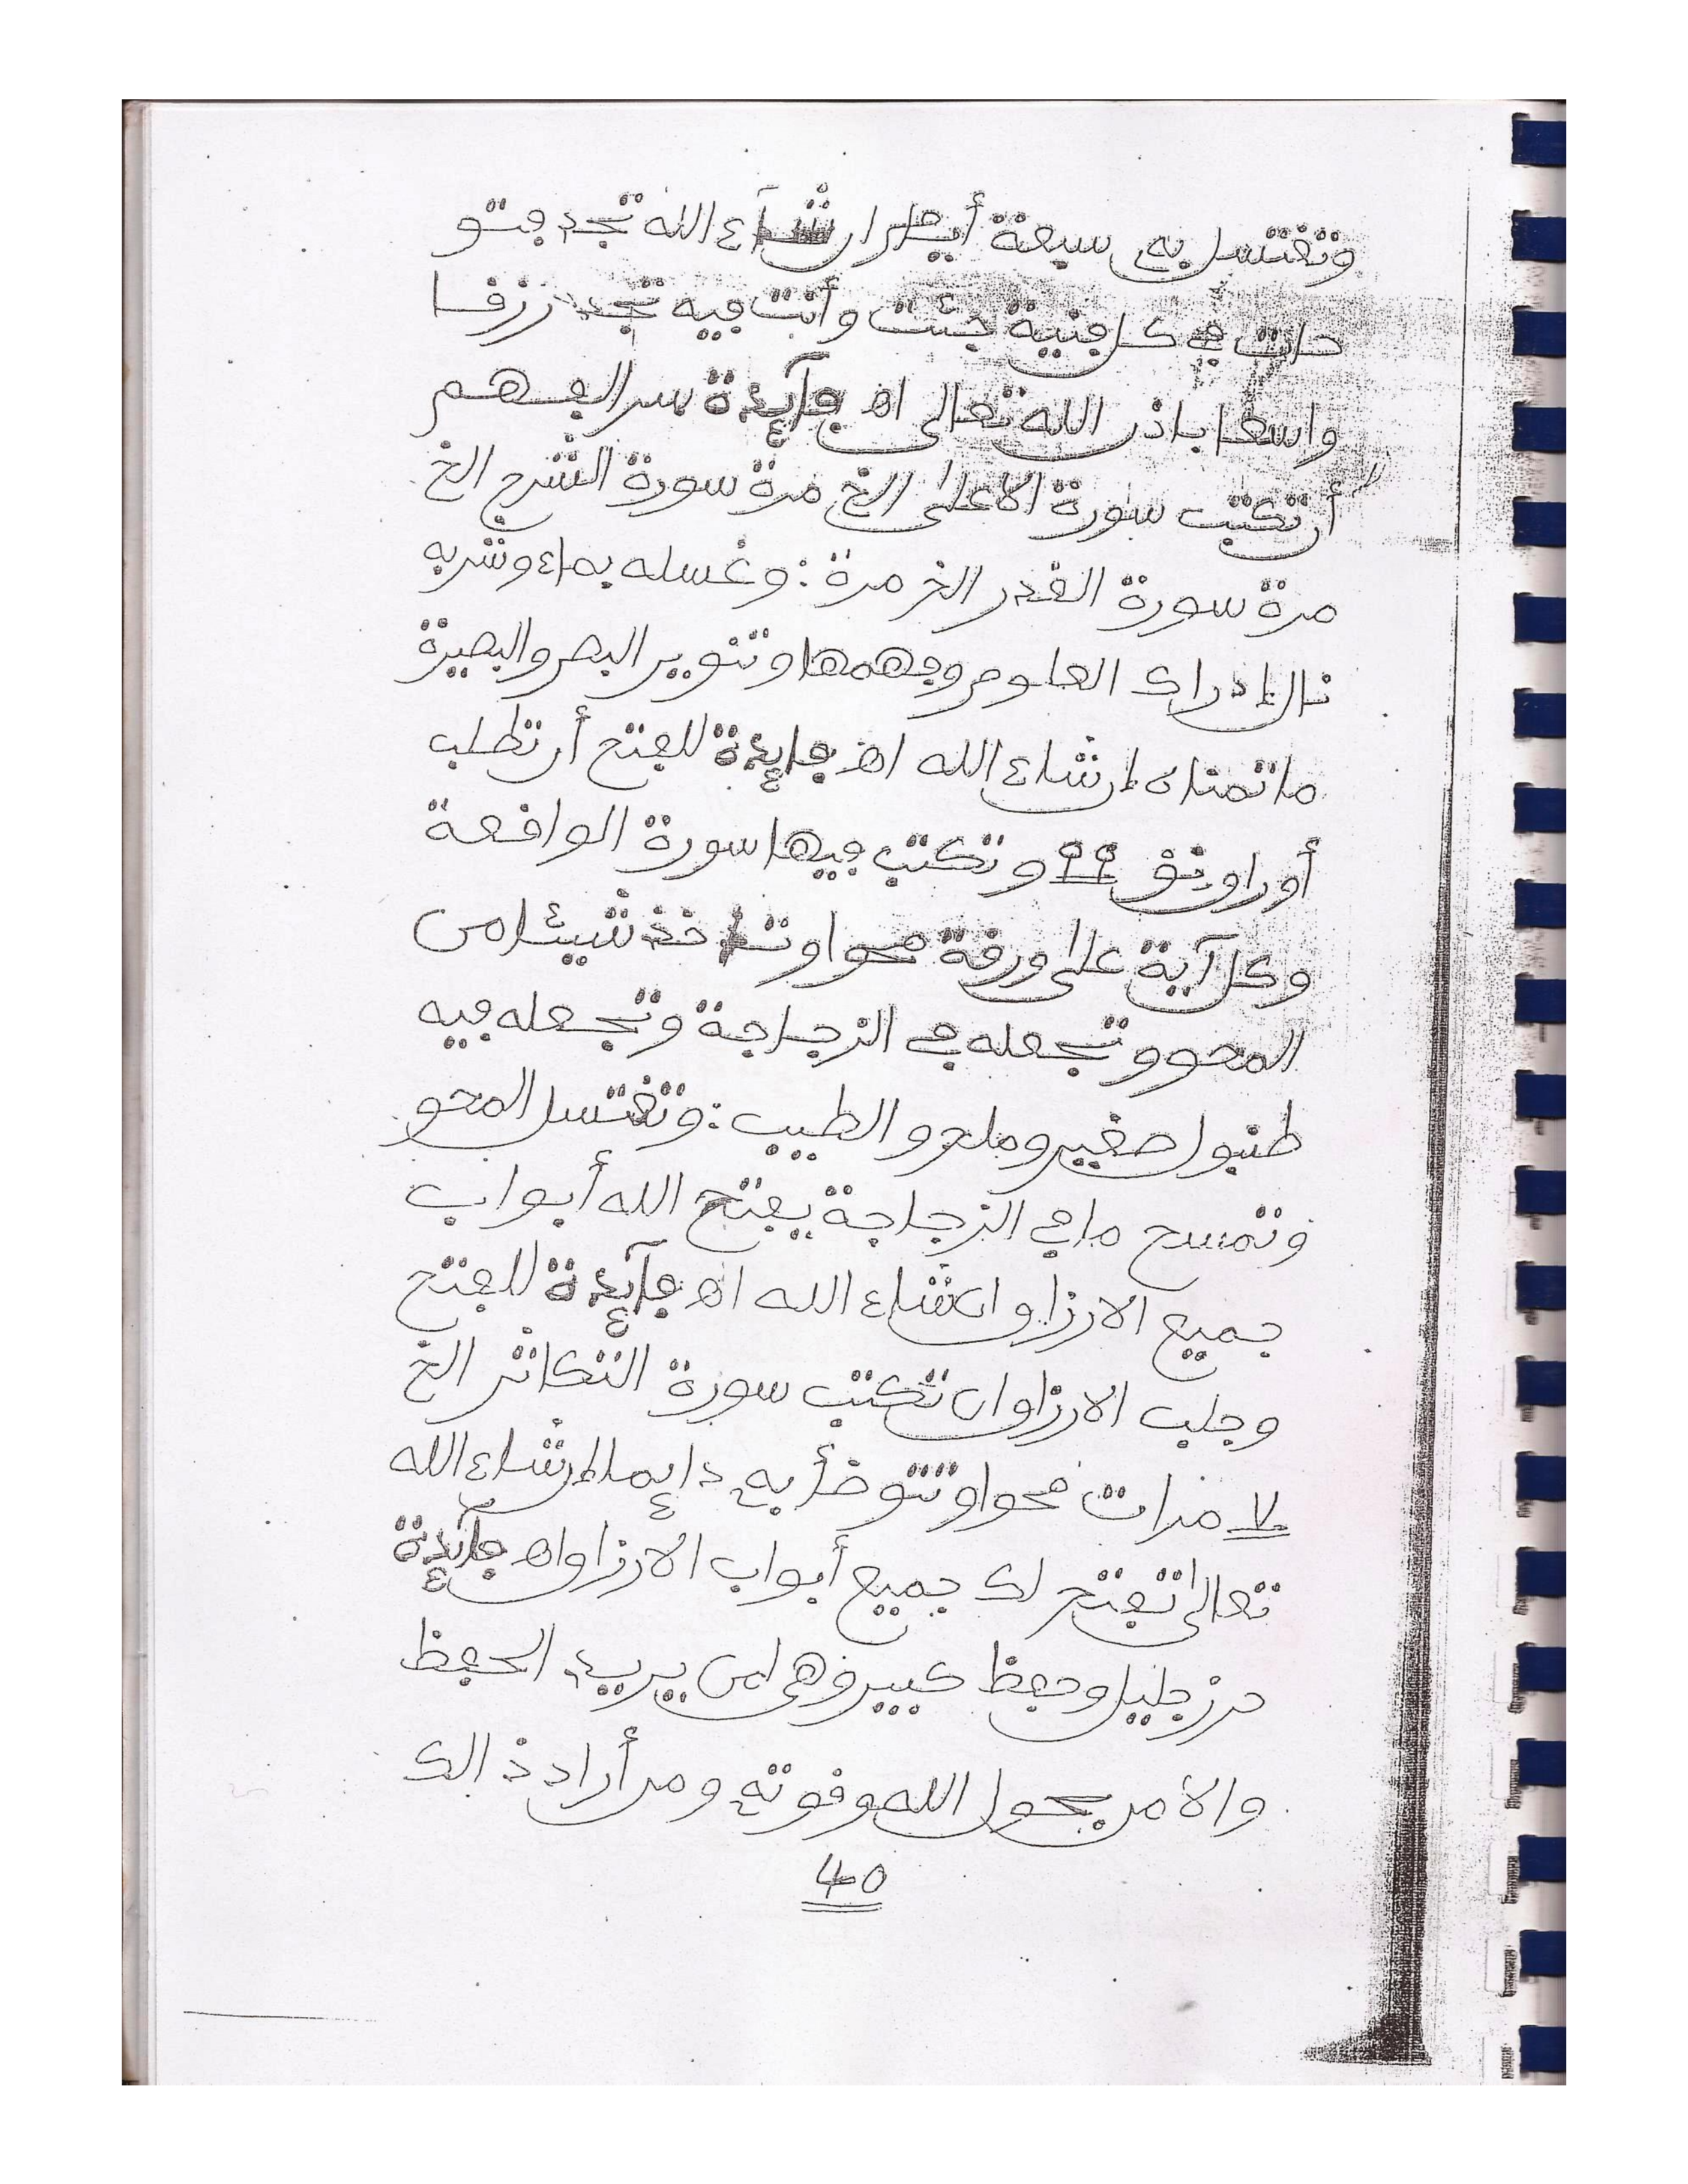 وتغتسل به سبعة أيام ان شآء الله تجد فتو
حات في كل فنية جئت وأنت فيه تجد رزقا
واسعا باذن الله تعالى اهـ فآئدة سر الفهم
أن تكتب سورة الاعلى الخ مرة سورة الشرح الخ
مرة سورة القدر الخ مرة : وغسله بماء وشربه
نال إدراك العلوم وفهمها وتنوير البصر والبصيرة
ما تمناه إن شاء الله اهـ فايدة للفتح أن تطلب
أوراق نق ٩٩ وتكتب فيها سورة الواقعة
وكل آية على ورقة محوا وتاخذ شيئا من
المحو وتجعله في الزجاجة وتجعله فيه
طنبول صغير وملح والطيب : وتغتسل المحو
وتمسح ما في الزجاجة يفتح الله أبواب
جميع الارزاق ان شاء الله اهـ فآيدة للفتح
وجلب الارزاق ان تكتب سورة التكاثر الخ
٧ مرات محوا وتتوضأ به دايما إن شاء الله
تعالى تفتح لك جميع أبواب الارزاق اهـ فآيدة
حرز جليل وحفظ كبير وهي لمن يريد الحفظ
والأمن بحول الله وقوته ومن أراد ذالك
40